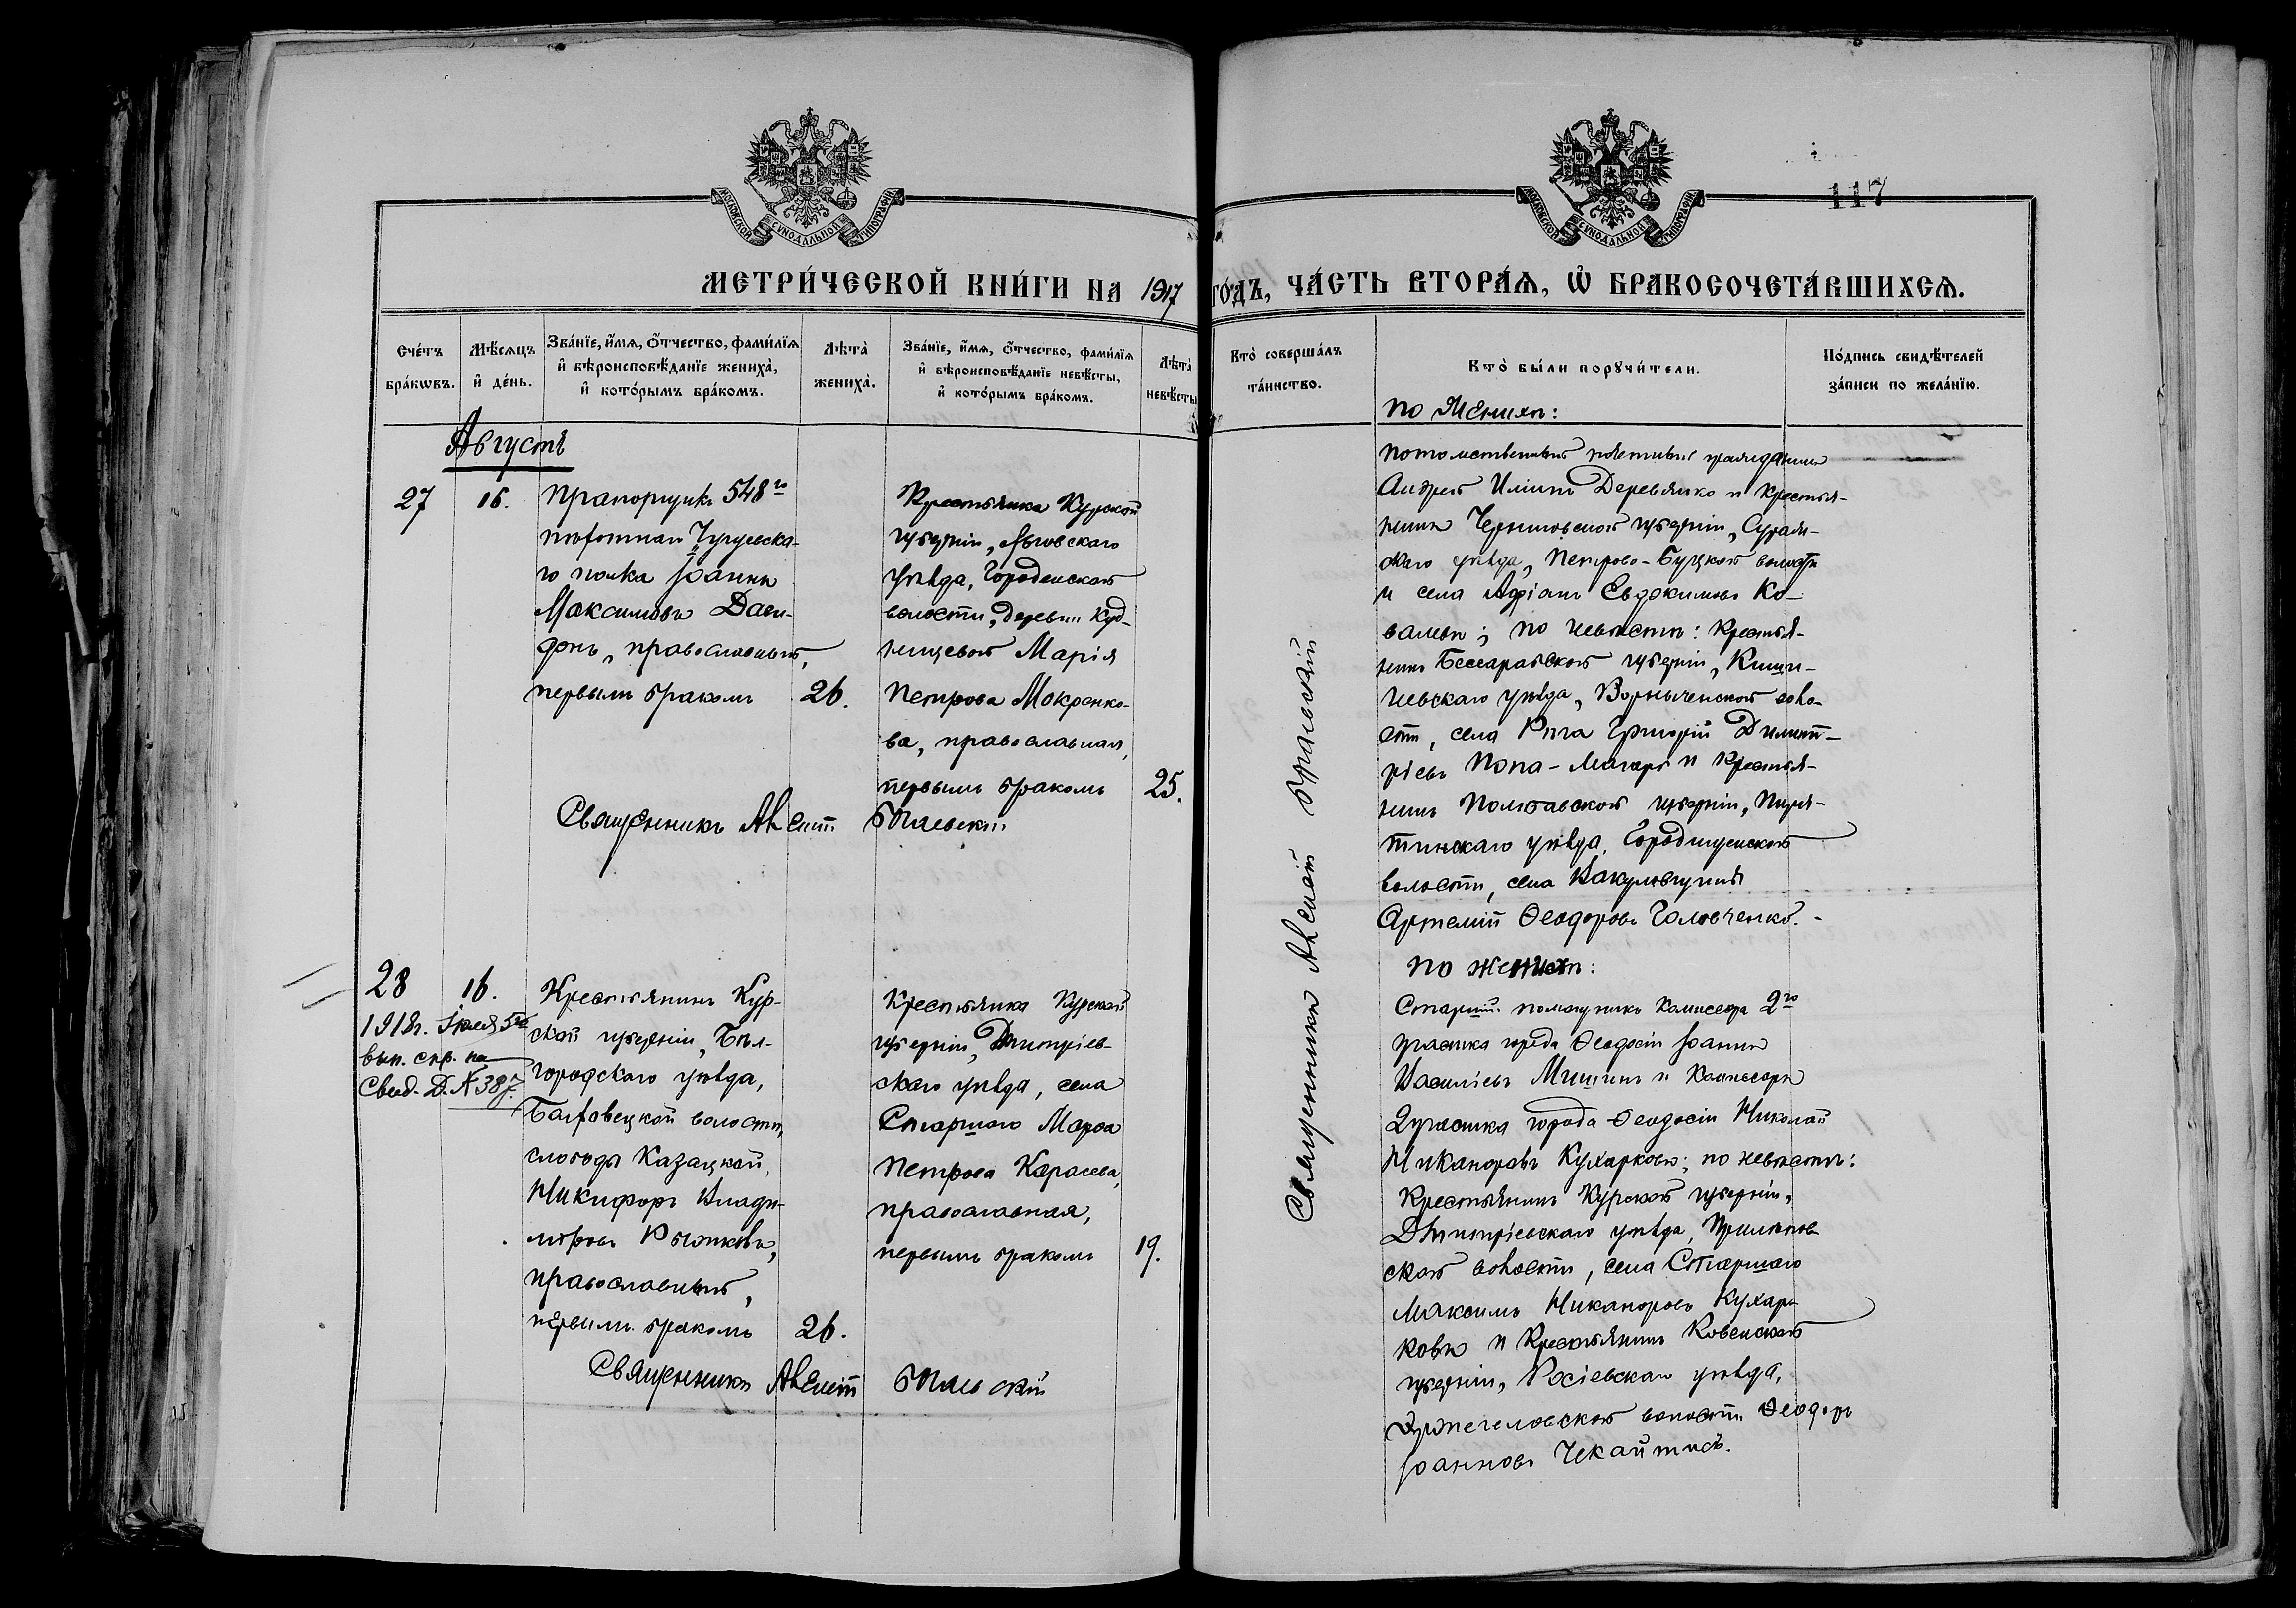 117
МОСКОВСКОЙ СѴНОДАЛЬНОЙ ТИПОГРАФІИ
МОСКОВСКОЙ СѴНОДАЛЬНОЙ ТИПОГРАФІИ
МЕТРИ́ЧЕСКОЙ КНИ́ГИ НА 1917 ГО́ДЪ, ЧА́СТЬ ВТОРА́Я, Ѡ҆ БРАКОСОЧЕТА́ВШИХСЯ.
Сче́тъ бра́кѡвъ.
Мѣ́сяцъ и҆ де́нь.
Зва́нїе, и҆́мя, ѻ҆́тчество, фами́лїя
и҆ вѣроисповѣ́данїе жениха̀,
и҆ кото́рымъ бра́комъ.
Лѣ́та̀ жениха̀.
Зва́нїе, и҆́мя, ѻ҆́тчество, фами́лїя
и҆ вѣроисповѣ́данїе невѣ́сты,
и҆ кото́рымъ бра́комъ.
Лѣ́та̀ невѣ́сты
Кто̀ соверша́лъ
та́инство.
Кто̀ бы́ли порꙋчи́тели.
По́дпись свидѣ́телей
за́писи по жела́нїю.
Августъ
27
16.
Прапорщикъ 548го
пѣхотнаго Чугуевска-
го полка Іоаннъ
Максимовъ
православный,
первымъ бракомъ
26.
Крестьянка Курской
губерніи, Льговскаго
уѣзда, Городенской
волости, деревни
Марія
Петрова Мокренко-
ва, православная,
первымъ бракомъ
25.
Священникъ
Священникъ
по женихѣ:
потомственный почетный гражданинъ
Андрей Ильинъ Деревянко и крестья-
нинъ Черниговской губерніи, Сураж-
скаго уѣзда, Петрово-Буцкой волости
и села Адріанъ Евдокимовъ Ко-
валевъ; по невѣстѣ: крестья-
нинъ Бессарабской губерніи, Киши-
невскаго уѣзда, Ворниченской воло-
сти, села Григорій Димит-
ріевъ и крестья-
нинъ Полтавской губерніи, Пиря-
тинскаго уѣзда, Городищенской
волости, села
Артемій Ѳеодоровъ Головченко.
28
16.
1918г.
вып. спр. на
Свид. Д. № 387.
Крестьянинъ Кур-
ской губерніи, Бѣл-
городскаго уѣзда,
Болховецкой волости,
слободы Казацкой,
Никифоръ Влади-
міровъ
православный,
первымъ бракомъ
26.
Крестьянка Курской
губерніи, Дмитріев-
скаго уѣзда, села
Старшаго Марѳа
Петрова Карасева,
православная,
первымъ бракомъ
19.
Священникъ
по женихѣ:
Старшій помощникъ комиссара 2го
участка города Ѳеодосіи Іоаннъ
Васильевъ Мишинъ и комиссаръ
2 участка города Ѳеодосіи Николай
Никаноровъ Кухарковъ; по невѣстѣ:
Крестьянинъ Курской губерніи,
Дмитріевскаго уѣзда,
ской волости, села Старшаго
Максимъ Никаноровъ Кухар-
ковъ и крестьянинъ Ковенской
губерніи, Россіенскаго уѣзда,
волости Ѳеодоръ
Іоанновъ Чекайтисъ.